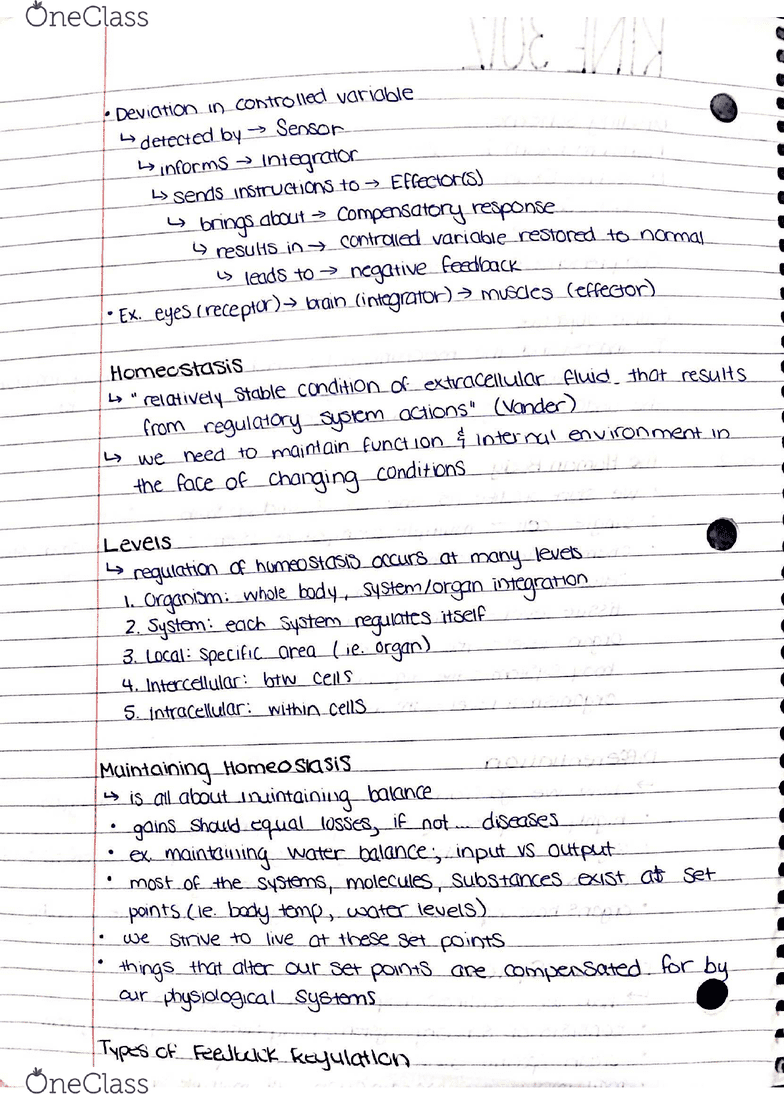 OneClass
• Deviation in controlled variable
↳ detected by → Sensor
↳ informs → Integrator
↳ sends instructions to → Effector(s)
↳ brings about → compensatory response
↳ results in → controlled variable restored to normal
↳ leads to → negative feedback
• Ex. eyes (receptor) → brain (integrator) → muscles (effector)
Homeostasis
↳ "relatively stable condition of extracellular fluid that results
from regulatory system actions" (Vander)
↳ we need to maintain function & internal environment in
the face of changing conditions
Levels
↳ regulation of homeostasis occurs at many levels
1. Organism: whole body, system/organ integration
2. System: each system regulates itself
3. Local: specific area (ie. organ)
4. Intercellular: btw cells
5. Intracellular: within cells
Maintaining Homeostasis
↳ is all about maintaining balance
• gains should equal losses, if not... diseases
• ex. maintaining water balance; input vs output
• most of the systems, molecules, substances exist at set
points (ie. body temp, water levels)
• we strive to live at these set points
• things that alter our set points are compensated for by
our physiological systems
Types of Feedback Regulation
OneClass